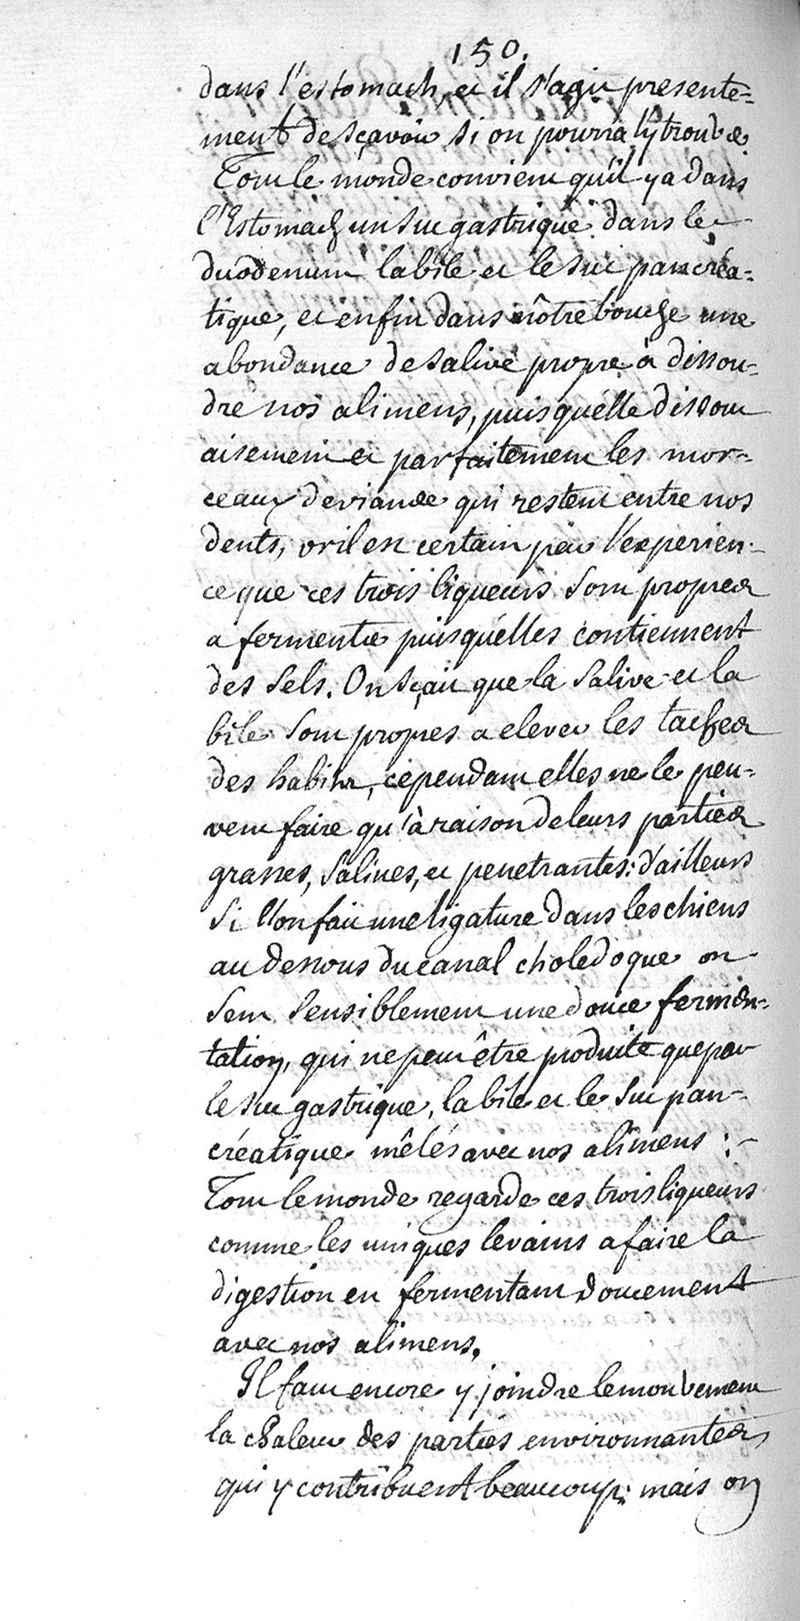 150.
dans l'estomach, et il s'agit presente=
ment de sçavoir si on pourra l'y trouver
Tout le monde convient qu'il y a dans
l'Estomach un suc gastrique dans le
duodenum la bile et le suc pancréa=
tique, et enfin dans nôtre bouche une
abondance de salive propre à dissou=
dre nos alimens, puisqu'elle dissout
aisement et parfaitement les mor=
ceaux de viande qui restent entre nos
dents, or il est certain par l'experien=
ce que ces trois liqueurs sont propres
a fermenter puisqu'elles contiennent
des sels. On sçait que la salive et la
bile sont propres a elever les taches
des habits, cependant elles ne le peu=
vent faire qu'à raison de leurs parties
grasses, salines, et penetrantes: d'ailleurs
si l'on fait une ligature dans les chiens
au dessous du canal choledoque on
sent sensiblement une douce fermen=
tation, qui ne peut être produite que par
le suc gastrique, la bile et le suc pan=
créatique mêlés avec nos alimens :
Tout le monde regarde ces trois liqueurs
comme les uniques levains a faire la
digestion en fermentant doucement
avec nos alimens.
Il faut encore y joindre le mouvement
la chaleur des parties environnantes
qui y contribuent beaucoup: mais on